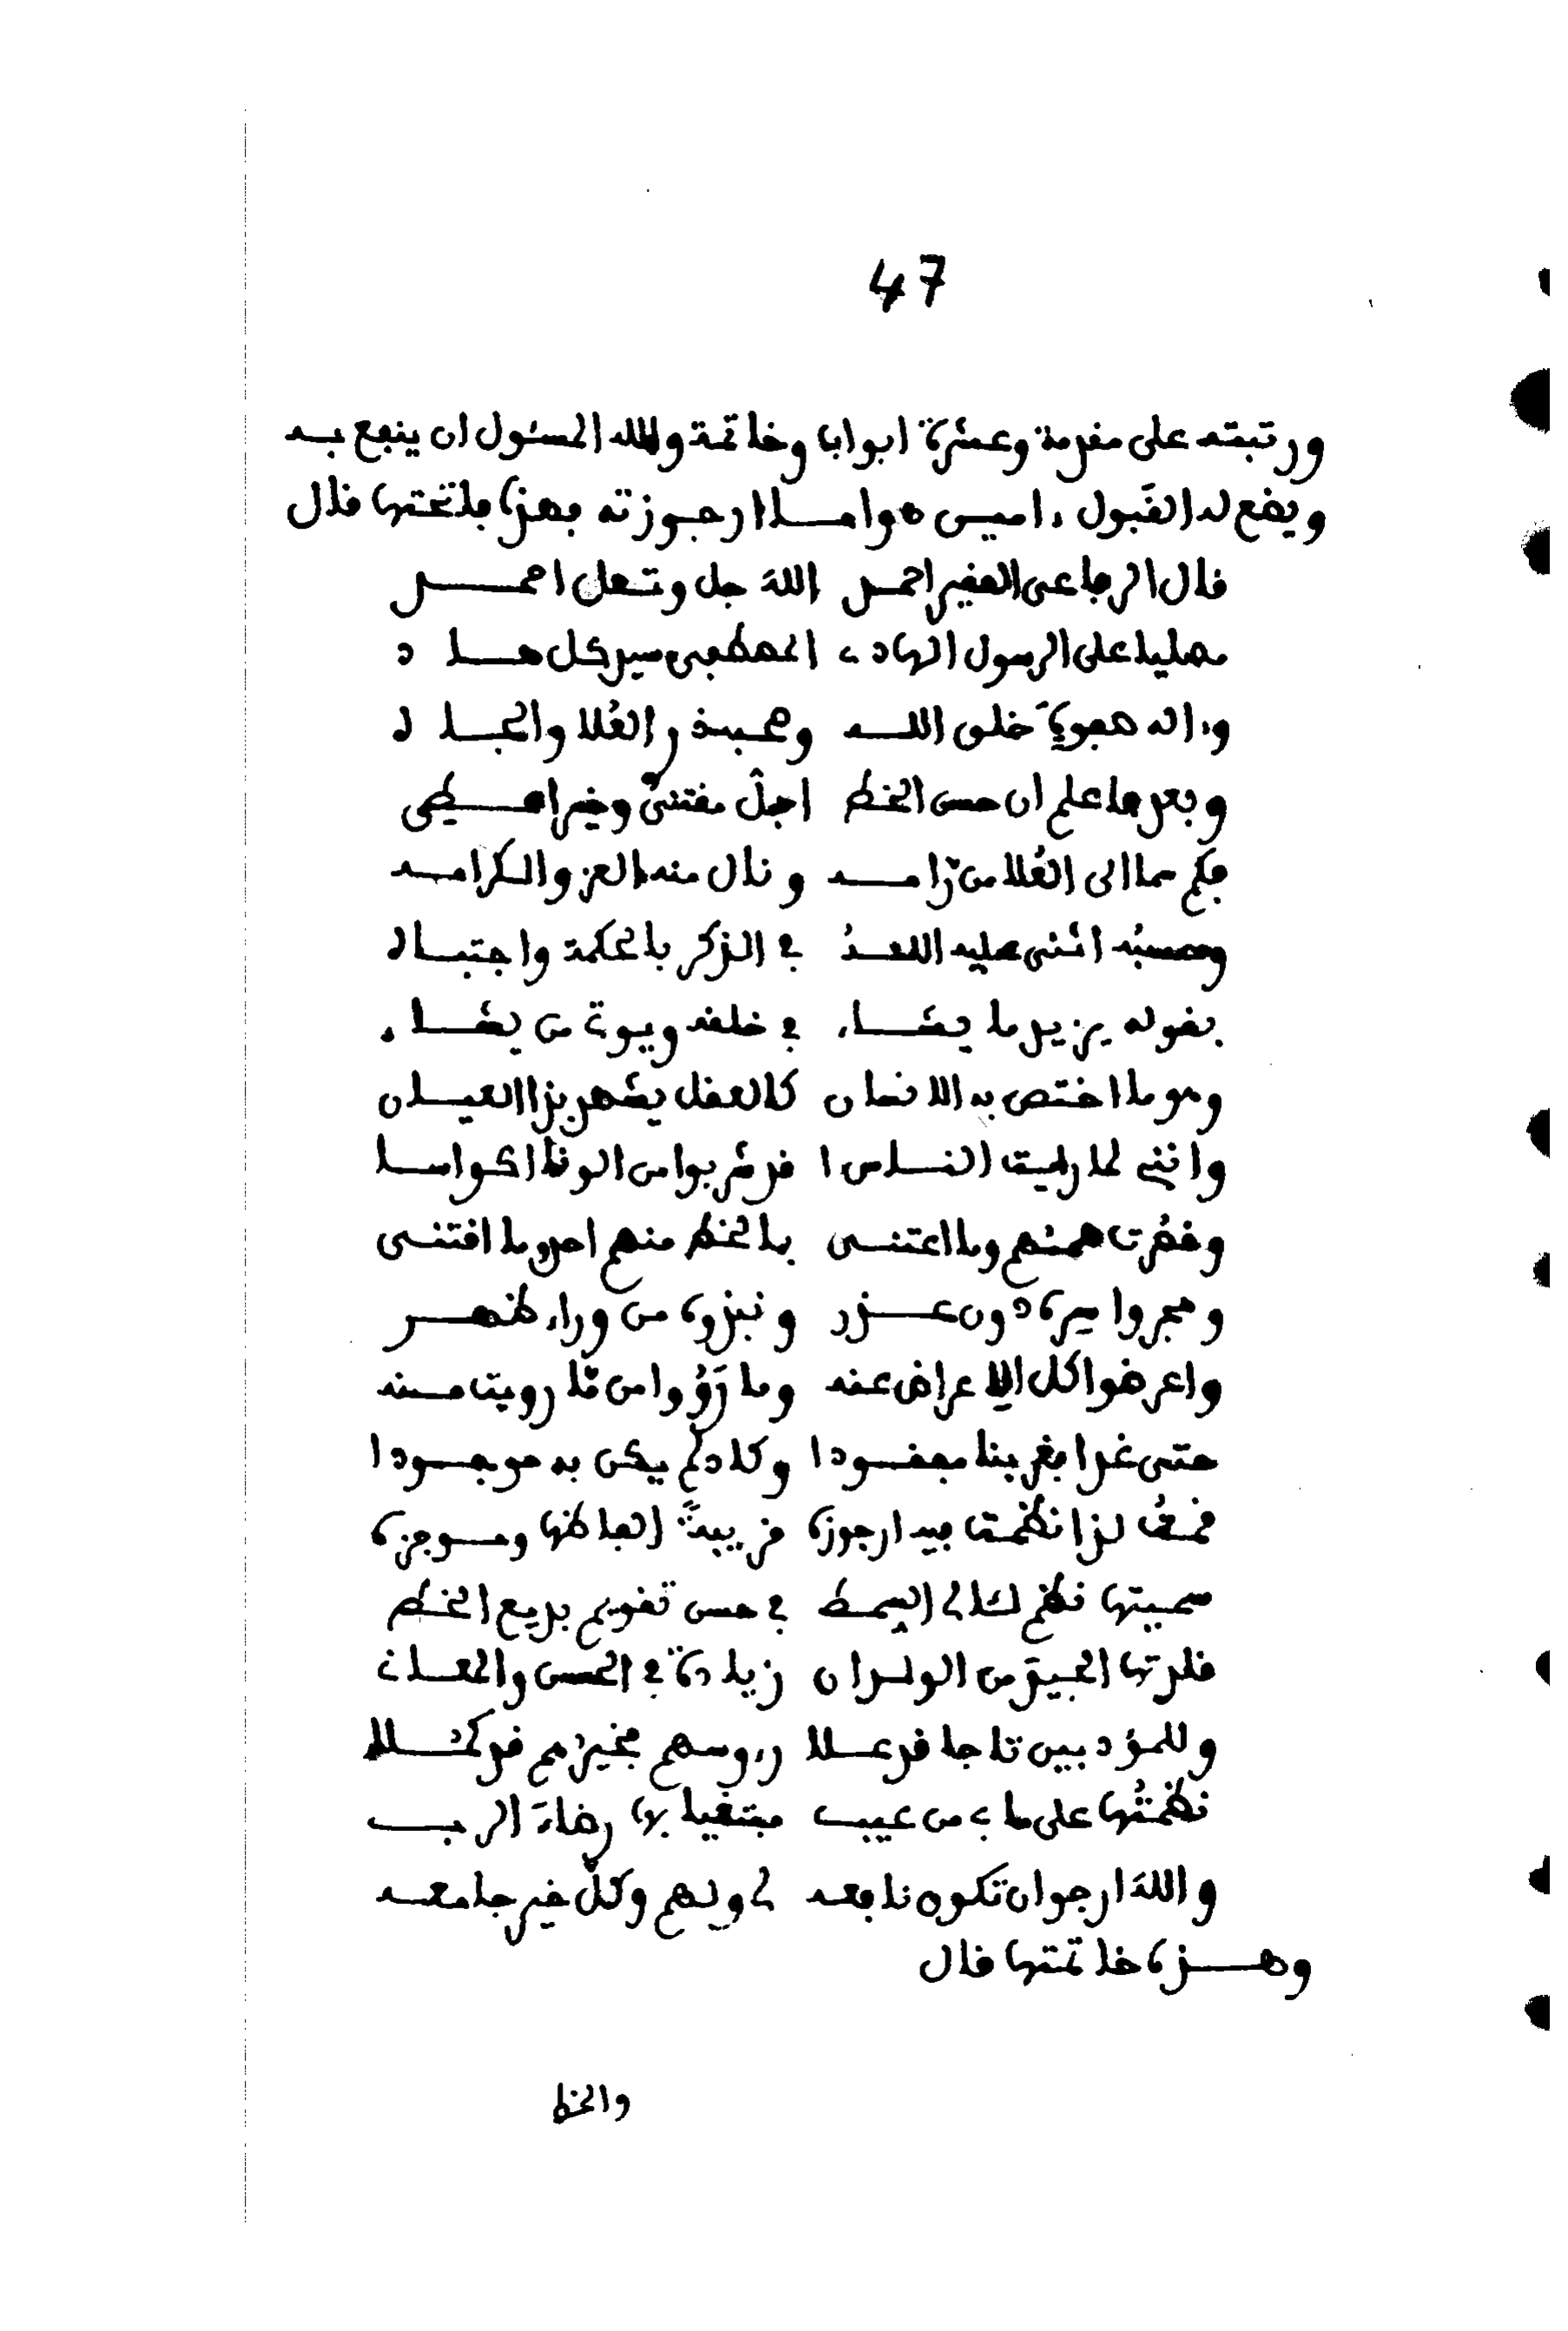 47
ورتبته على مقدمة وعشرة ابواب وخاتمة والله المسئول ان ينفع به
ويضع له القبول ءاميـن ه واما ارجوزته فهذه فاتحتها قال
قال الرفاعى الفقير احمـد الله جل وتـعلى احمـد
مصليا على الرسول الهادى المصطفى سيد كل هـاد
وءاله صفوة خلق اللـه وصحبه ذو العُلا والجـاه
وبعد فاعلم ان حسن الخط اجلّ مقتنىً وخير امـطى
فكم سما الى العُلا من رامـه ونال منه العز والكرامـه
وحسبُه اثنى عليه اللهُ في الذكر بالحكمة واجتبـاه
بقوله يزيد ما يشـاء في خلقه ويوتى من يشـاء
وهو ما اختص به الانسان كالعقل يشهد بذا العيـان
واننى لما رايت النـاس ا قد شربوا من الونا اكواسـا
وقصُرت همتهم وما اعتنـى بالخط منهم احد وما اقتنـى
وهجروا سيره دون عـذر ونبذوه من وراء ظهـر
واعرضوا كل الاعراض عنه وما رَوُوا من ما رويت مـنه
حتى غدا بغربنا مفقـودا وكاد لم يكن به موجـودا
فخفتُ لذا نظمت فيه ارجوزه قريبةً الفاظها ومـوجزه
سميتها نظم لئالى السمـط في حسن تقويم بديع الخـط
قلدتها الجيد من الولدان زيادة في الحسن والمعـانى
وللمؤدبين تاجا قد عـلا رءوسهم بخيرهم قد كمـلا
نظمتُها على ما بى من عيب مبتغيا بها رضاءَ الرب
واللهَ ارجو ان تكون نافعه لى ولهم وكلَّ خير جامعـه
وهـذه خاتمتها قال
والخط